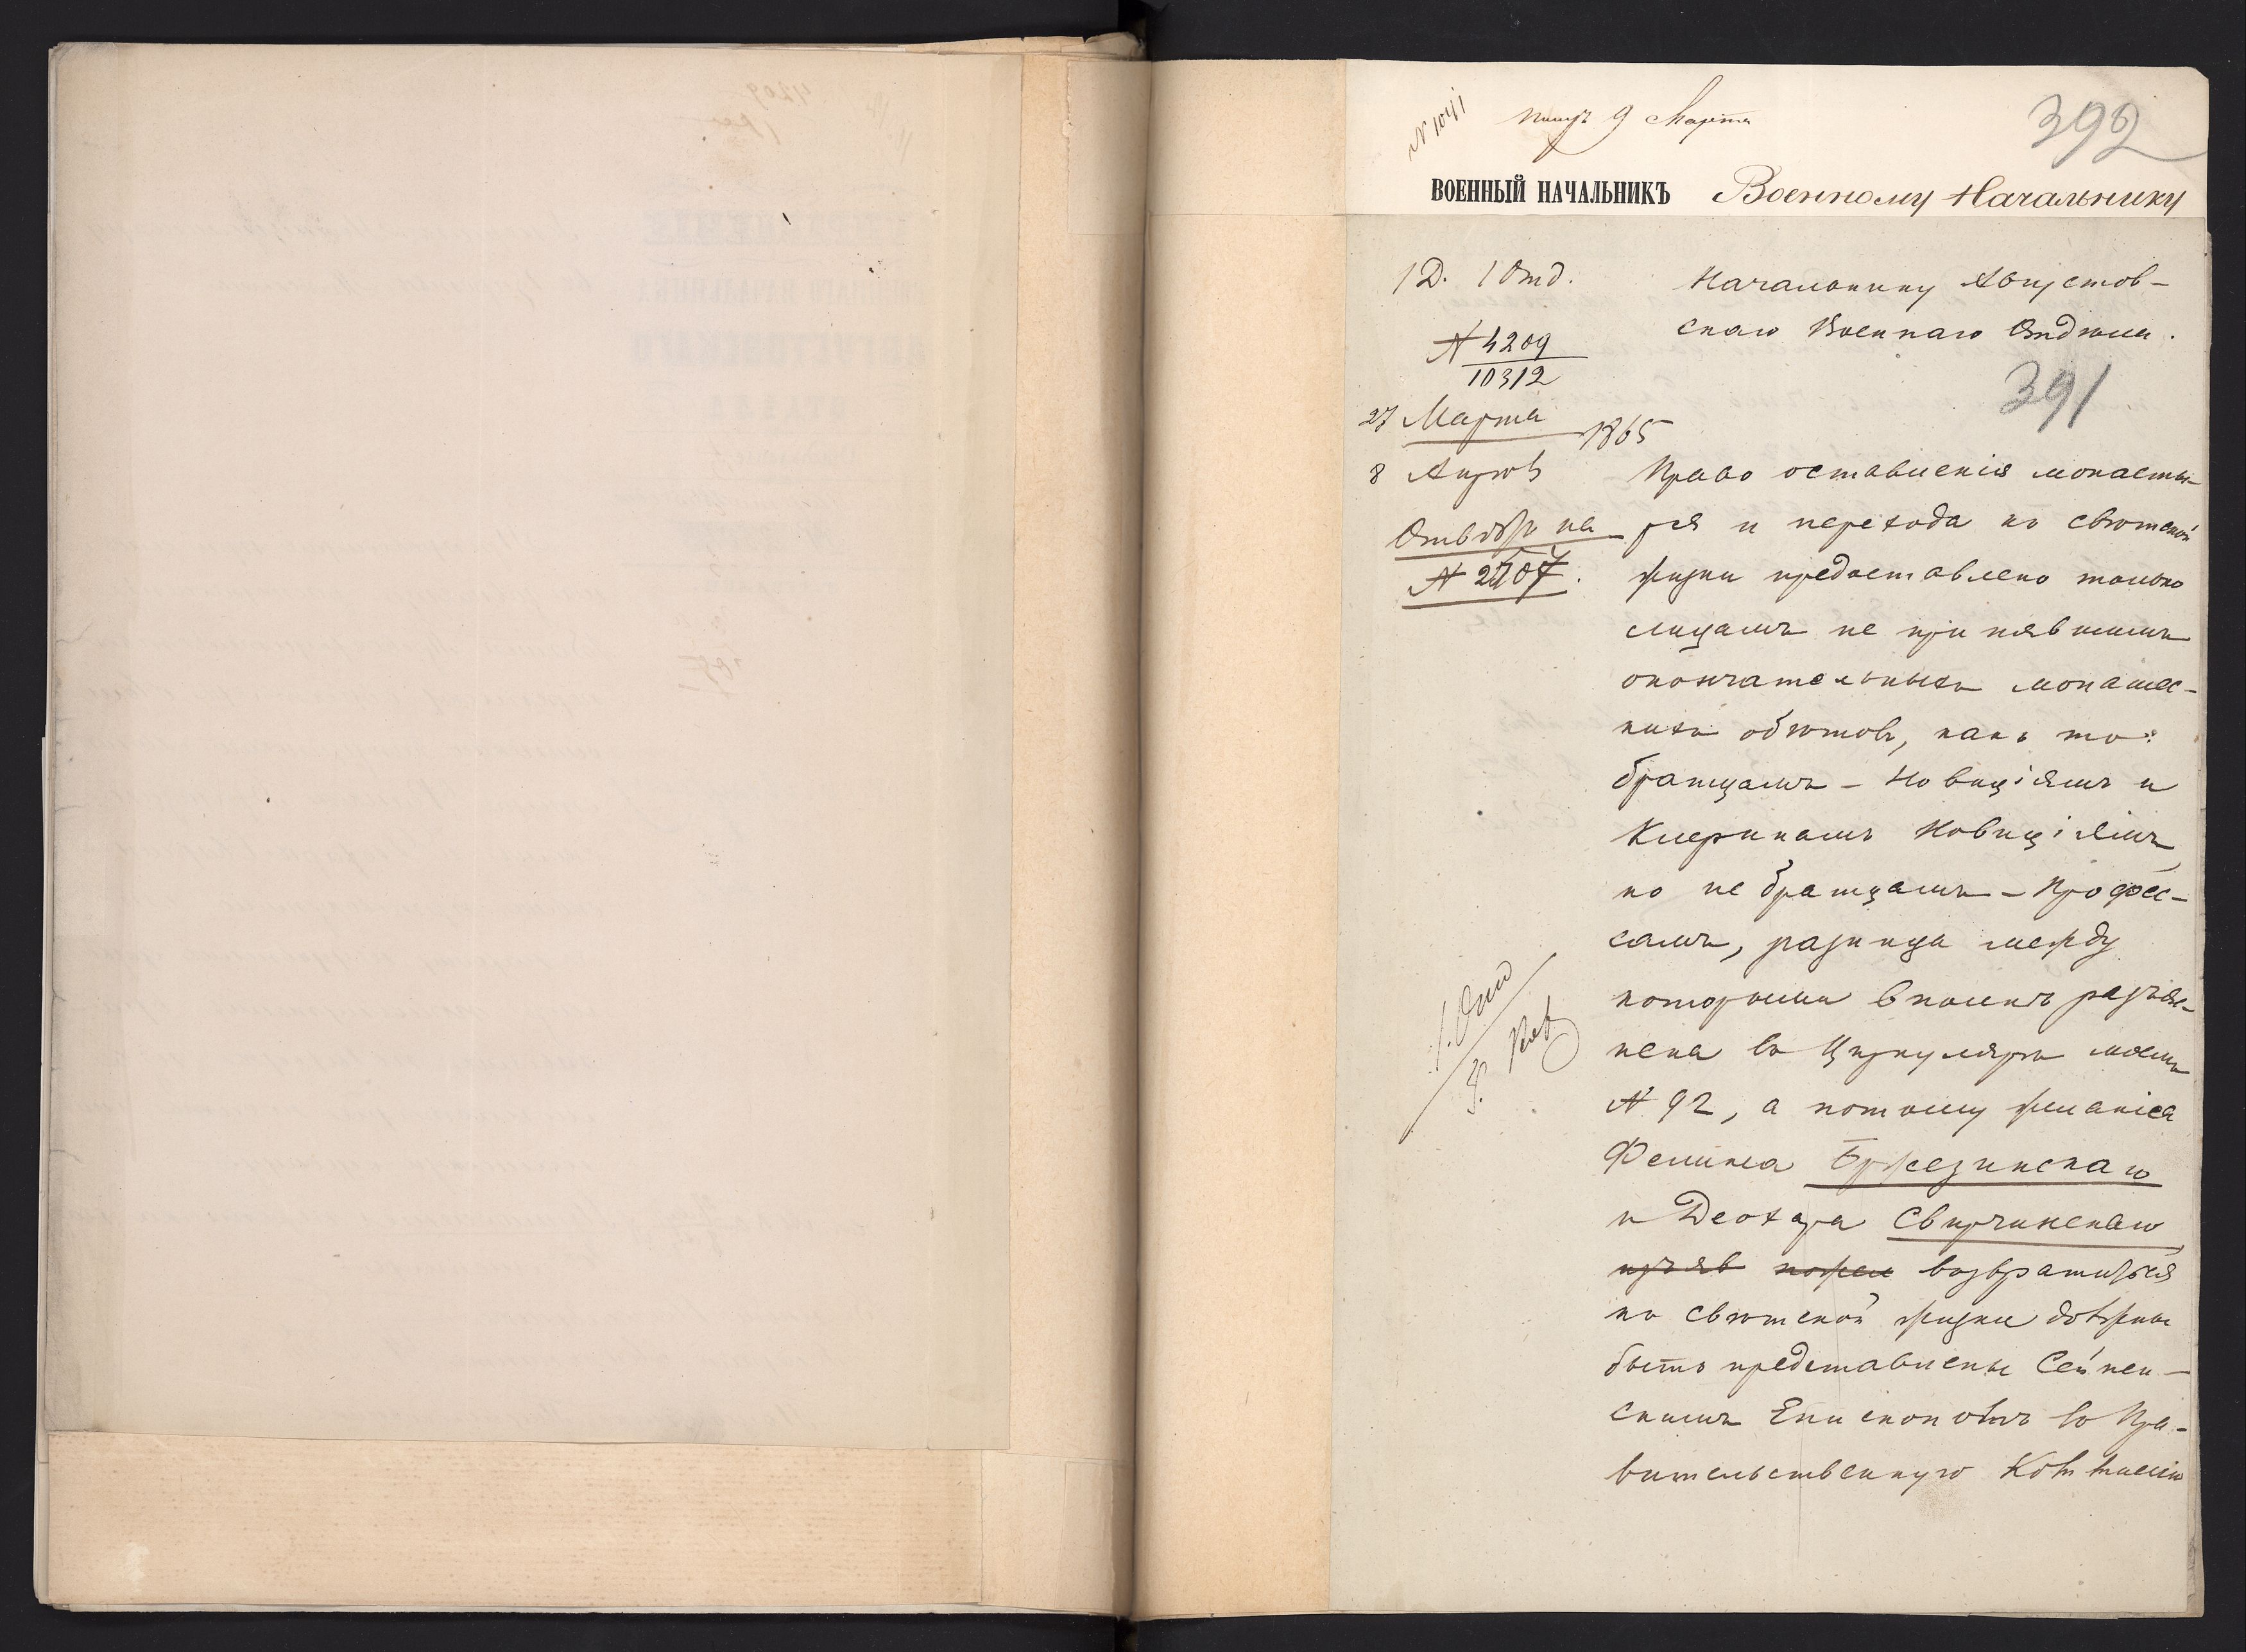 392
№ 1041
9 Марта
ВОЕННЫЙ НАЧАЛЬНИКЪ Военному Начальнику
1 Д. 1 Отд.
№ 4209
10312
27 Марта
8 Апрѣ 1865
Отвѣтъ на
№ 2707.
Начальнику Августов-
скаго Военнаго Отдѣла.
391
Право оставленія монасты-
ря и перехода къ свѣтской
жизни предоставлено только
лицамъ не принявшимъ
окончательныхъ монашес-
кихъ обѣтовъ, какъ то:
братцамъ - Новиціямъ и
Клерикамъ Новиціямъ,
но не братцамъ - Профес-
самъ, разница между
которыми вполнѣ разъяс-
нена въ Циркулярѣ моемъ
№ 92, а потому желаніе
Феликса Бржезинскаго
и Деохара Свирчинскаго
изъяв возвратиться
къ свѣтской жизни должны
быть представлены Сейнен-
скимъ Епископомъ въ Пра-
вительственную Коммисію
1. Отд